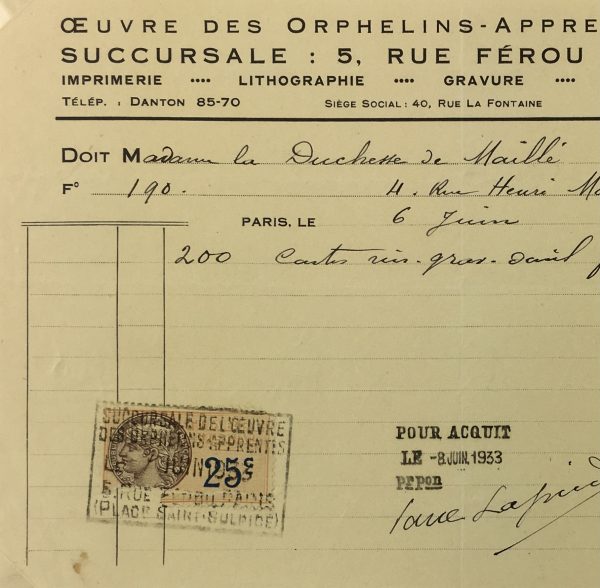 ŒUVRE DES ORPHELINS-APPRE
SUCCURSALE : 5, RUE FÉROU
IMPRIMERIE •••• LITHOGRAPHIE •••• GRAVURE ••••
TÉLÉP. : DANTON 85-70 SIÈGE SOCIAL : 40, RUE LA FONTAINE
DOIT Madame la Duchesse de Maillé
F° 190. 4. Rue Henri Mo
PARIS, LE 6 Juin
200 Cartes
SUCCURSALE DE L'ŒUVRE
DES ORPHELINS-APPRENTIS
JUIN
25c
5, RUE FÉROU, PARIS
(PLACE SAINT-SULPICE)
POUR ACQUIT
LE -8 JUIN 1933
prpon